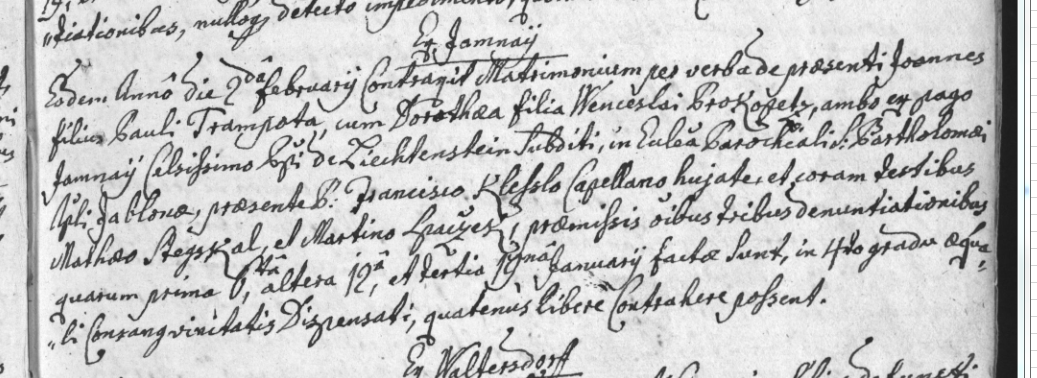 "tiationibus, nulloq, detecto impedimento,
Ex Jamnay
Eodem Annô die 2dâ Februarij Contraxit Matrimonium per verba de præsenti Joannes
filius Pauli Trampota, cum Dorothæa filia Wenceslai Prokopetz, ambo ex pago
Jamnaÿ Celsissimo Ppi de Liechtenstein Subditi, in Eclea Parochiali S. Bartholomæi
Apli Jablonæ, præsente P. Francisco Klesslo Capellano hujate, et coram testibus
Mathæo Stegskal, et Martino, præmissis oibus tribus denuntiationibus
quarum prima 6ta, altera 12a, et tertia 19nâ Januarij factæ sunt, in 4to gradu æqua"
"li Consangvinitatis Dispensati, quatenus libere Contrahere possent.
Ex Waltersdorff